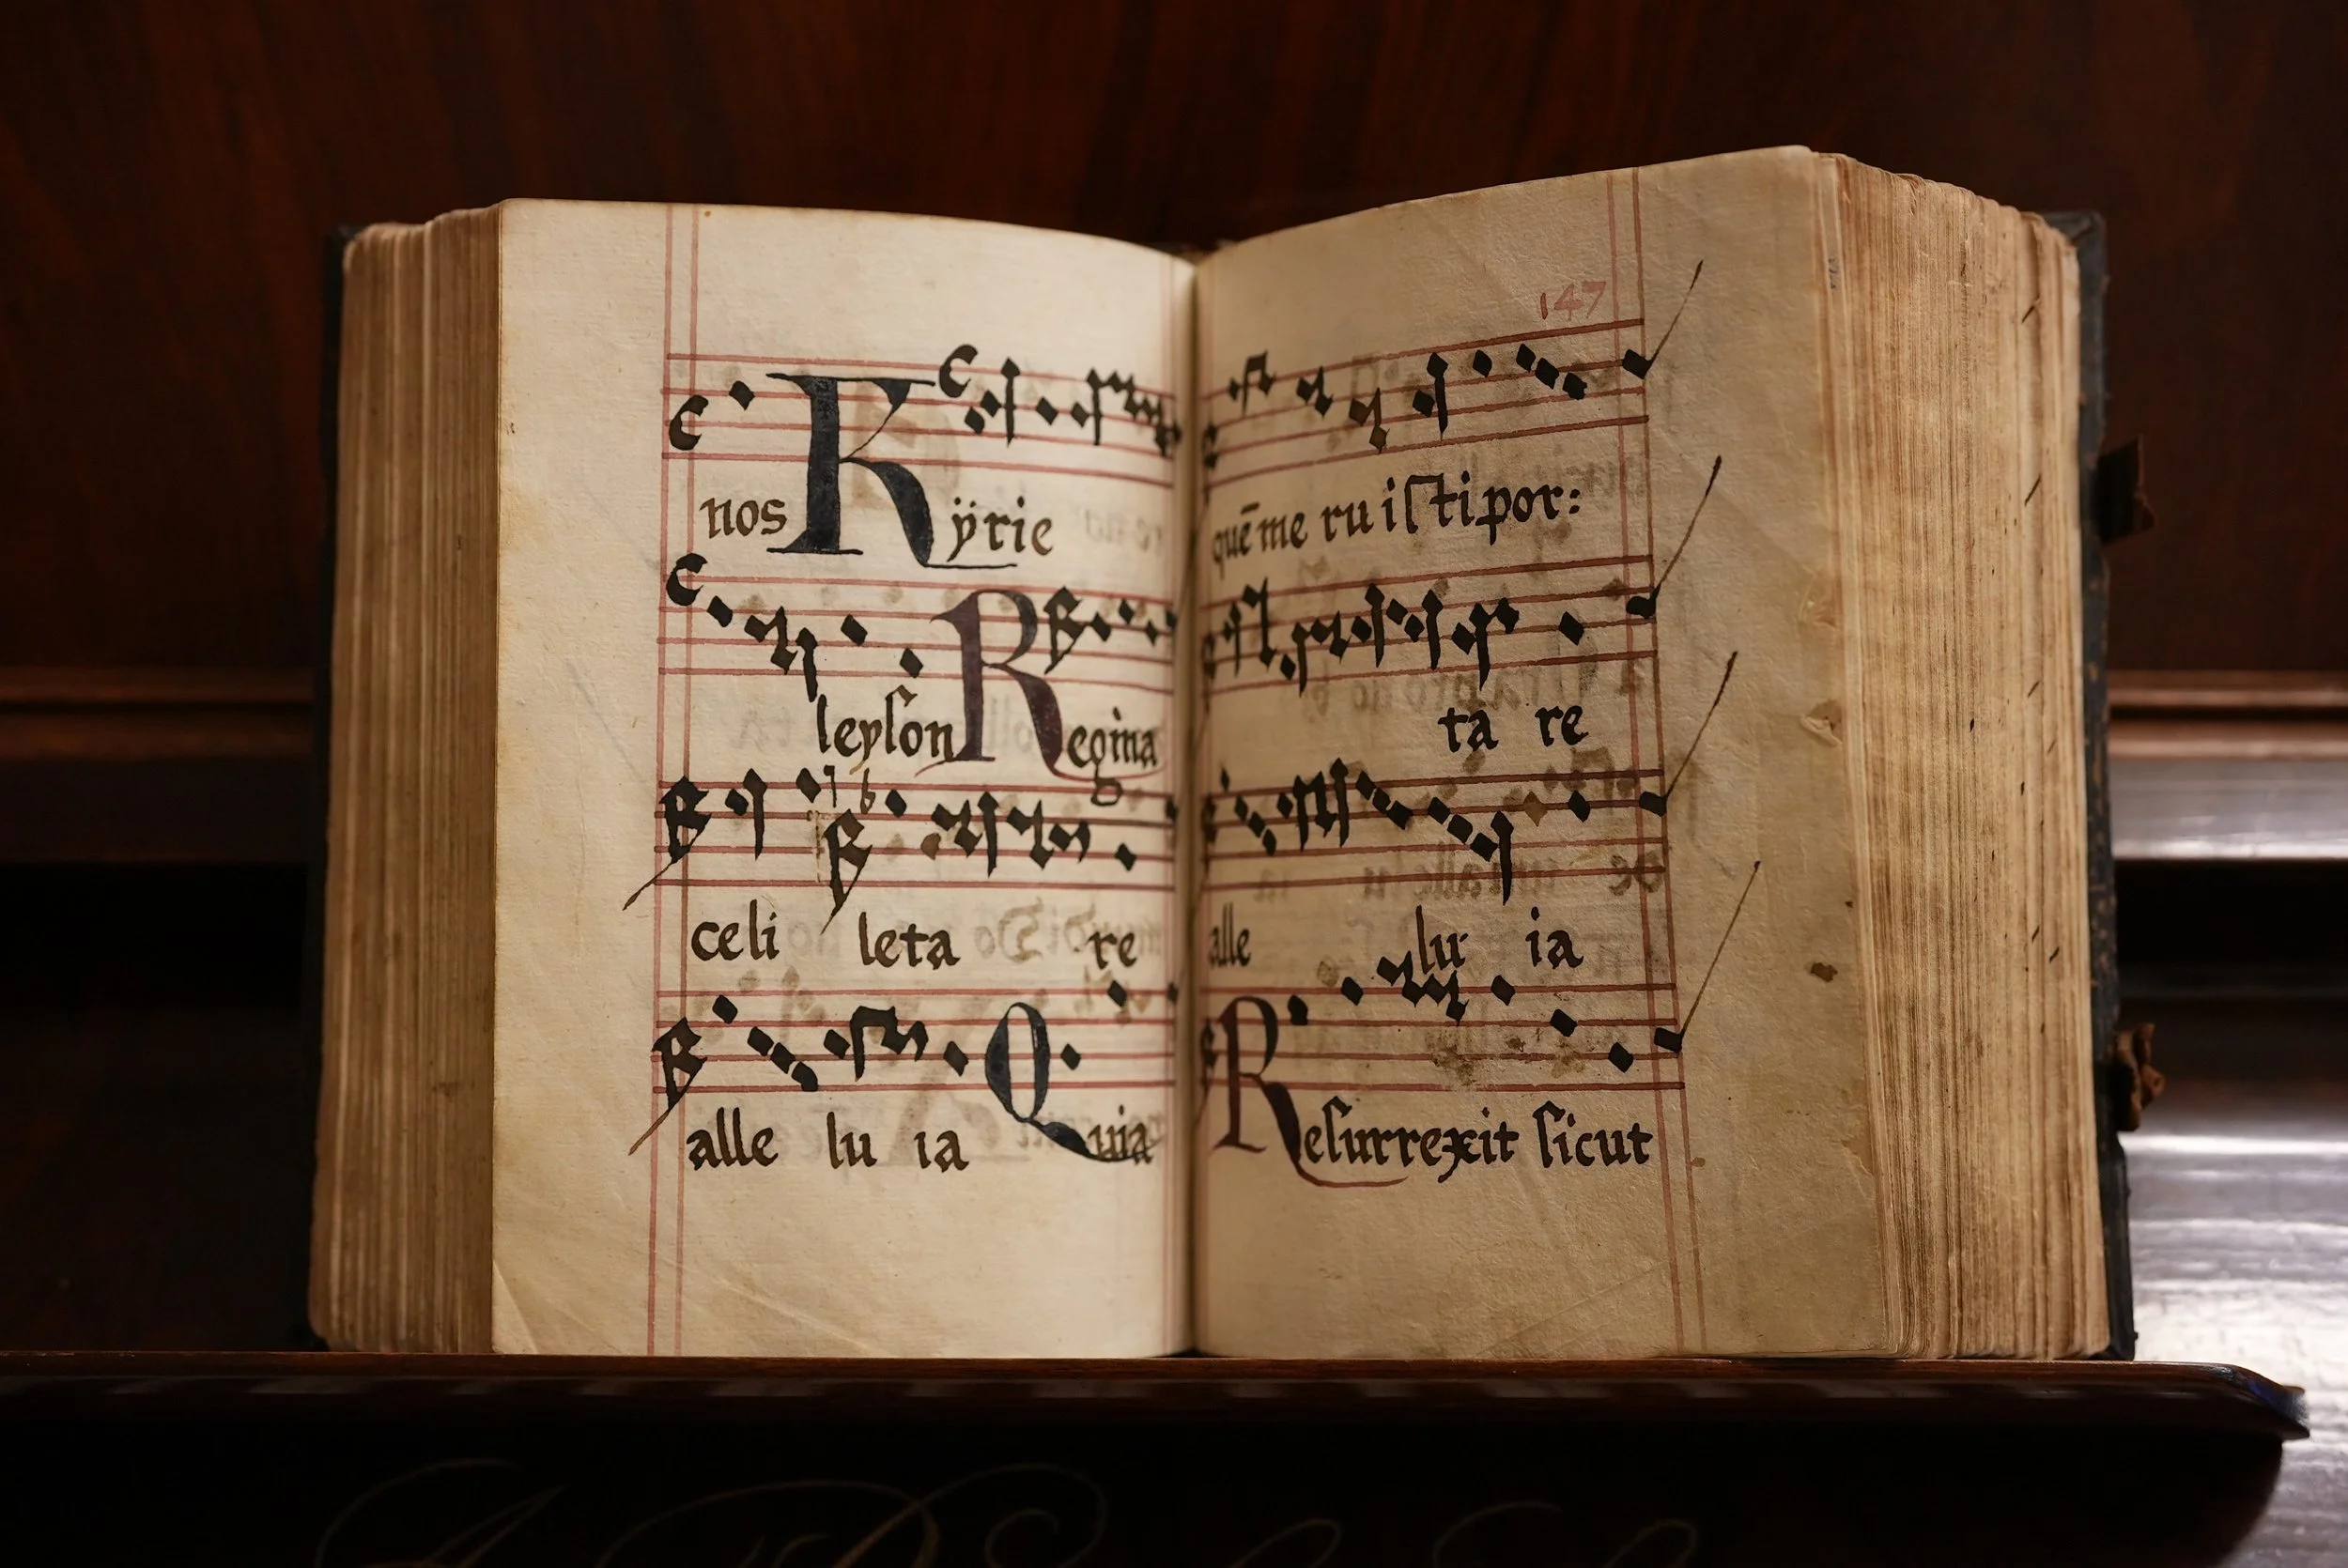 nos Kÿrie
leyſon Regina
celi leta re
alle lu ia Quia
147
quē me ru iſti por:
ta re
alle lu ia
Reſurrexit ſicut